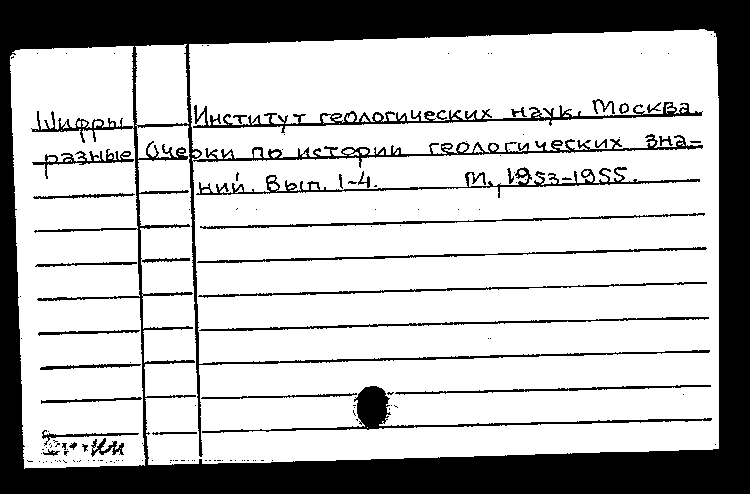 Шифры Институт геологических наук. Москва.
разные Очерки по истории геологических зна=
ний. Вып. 1-4. М., 1953-1955.